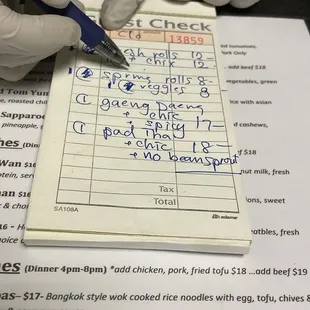 Guest Check
13859
sh rolls 12 -
+ chix 12 -
1 spring rolls 8 -
1 veggies 8
1 gaeng Daeng
+ chic
+ spicy 17 -
1 pad thai
+ chic 18 -
+ no beansprout
Tax
Total
SA108A
adams
d Tom Yun
d, roasted chi
Sapparo
pineapple,
Wan $16
rotein, ser
ns $1
$16 -
choice
es (Dinner 4pm-8pm) *add chicken, pork, fried tofu $18 ...add beef $19
as– $17- Bangkok style wok cooked rice noodles with egg, tofu, chives &
ed tomatoes.
rk Only
.add beef $18
vegetables, green
rice with asian
d cashews,
nut milk, fresh
eatballs, fresh